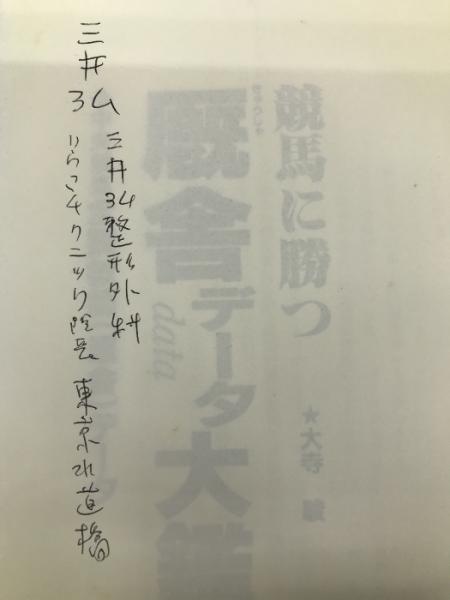 三井弘
三井弘整形外科
リウマチクリニック院長 東京水道橋
競馬に勝つ
きゅうしゃ
厩舎データ大鑑
data
★大寺